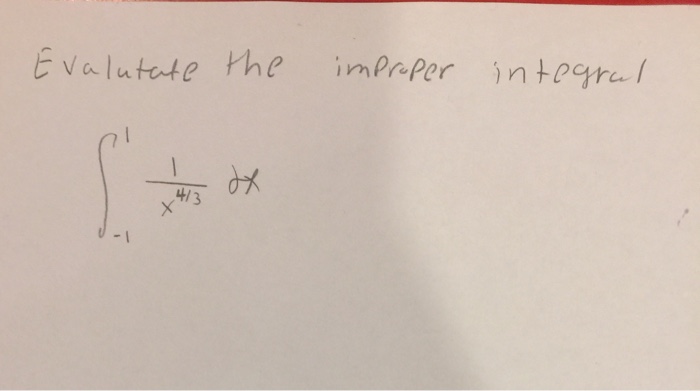 Evalutate the improper integral
∫_{-1}^{1} 1/x^{4/3} dx